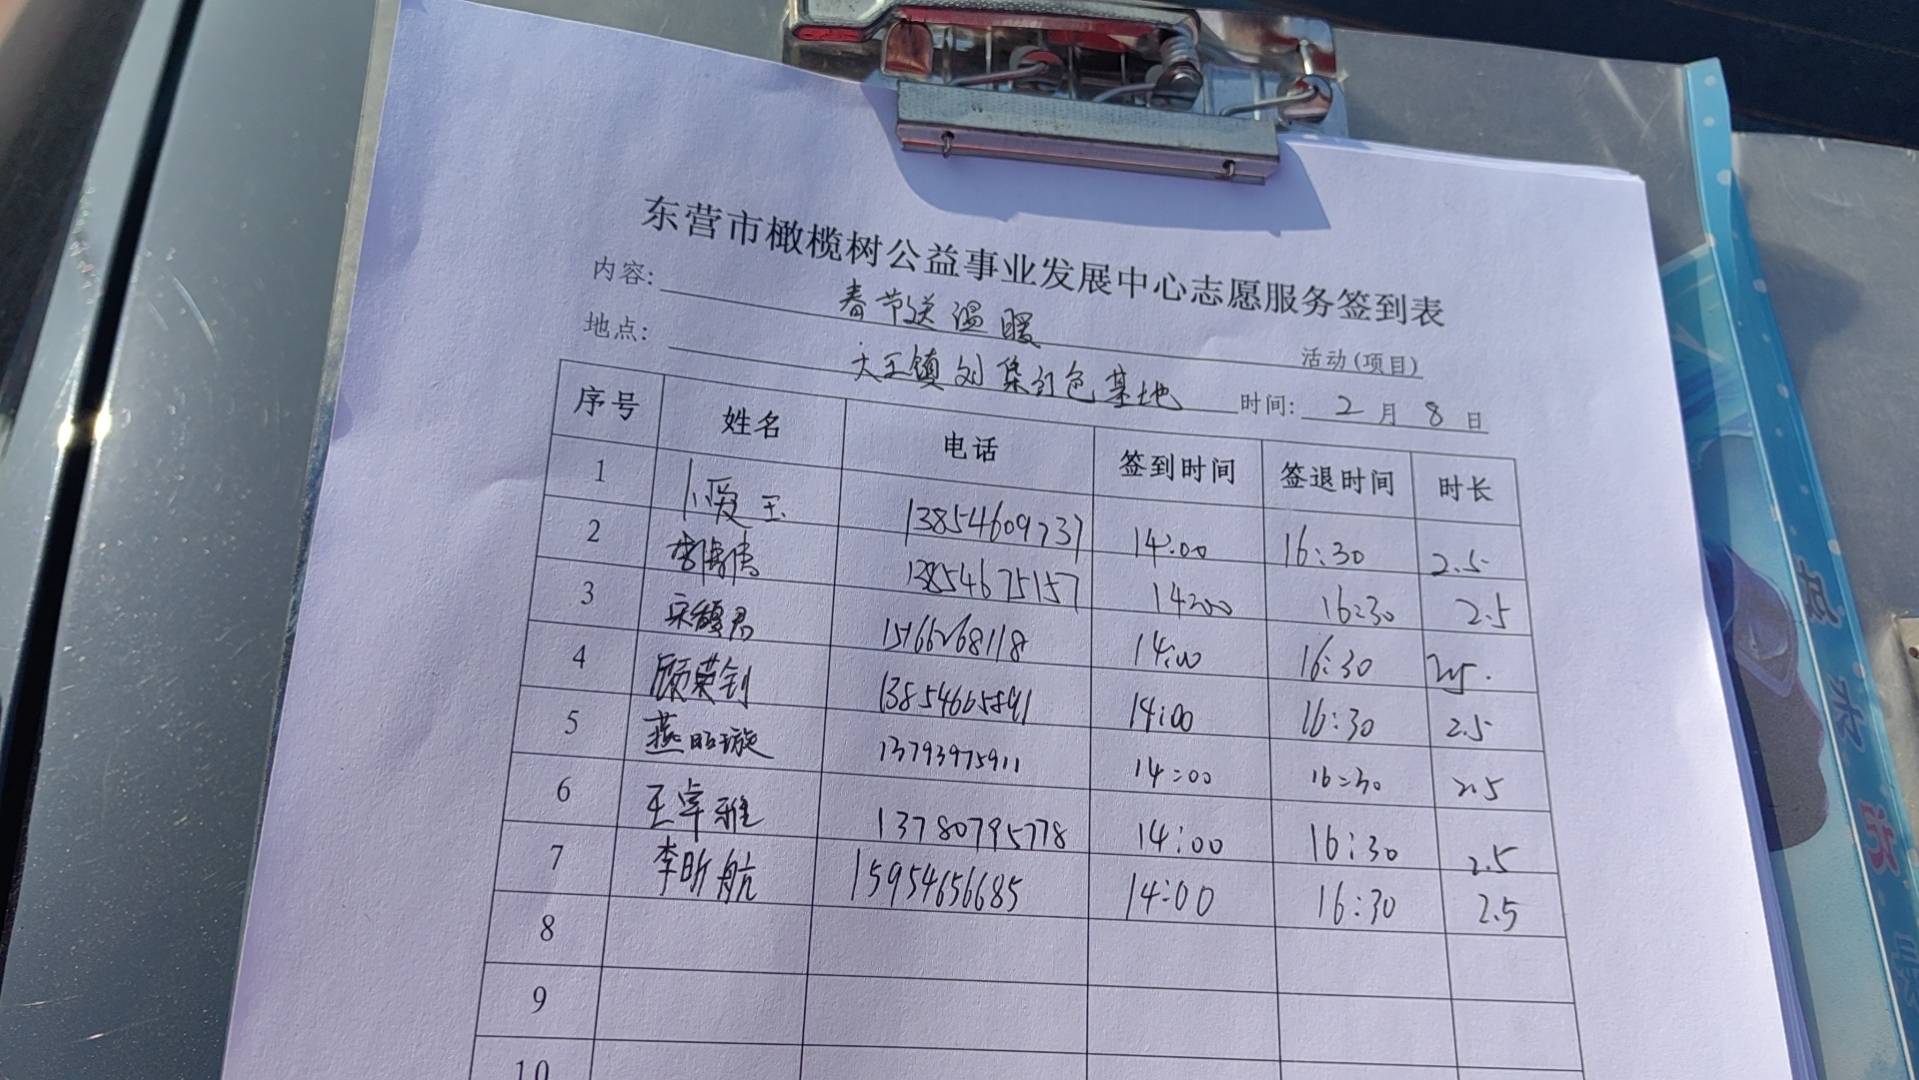 东营市橄榄树公益事业发展中心志愿服务签到表
内容: 春节送温暖 活动(项目)
地点: 大王镇刘集红色基地 时间: 2月8日
序号 姓名 电话 签到时间 签退时间 时长
1 卜爱玉 13854609737 14:00 16:30 2.5
2 13854675157 14:00 16:30 2.5
3 15166268118 14:00 16:30 2.5
4 顾荣钊 13854665891 14:00 16:30 2.5
5 燕昭璇 13793975911 14:00 16:30 2.5
6 王卓雅 13780795778 14:00 16:30 2.5
7 李昕航 15954656685 14:00 16:30 2.5
8
9
10